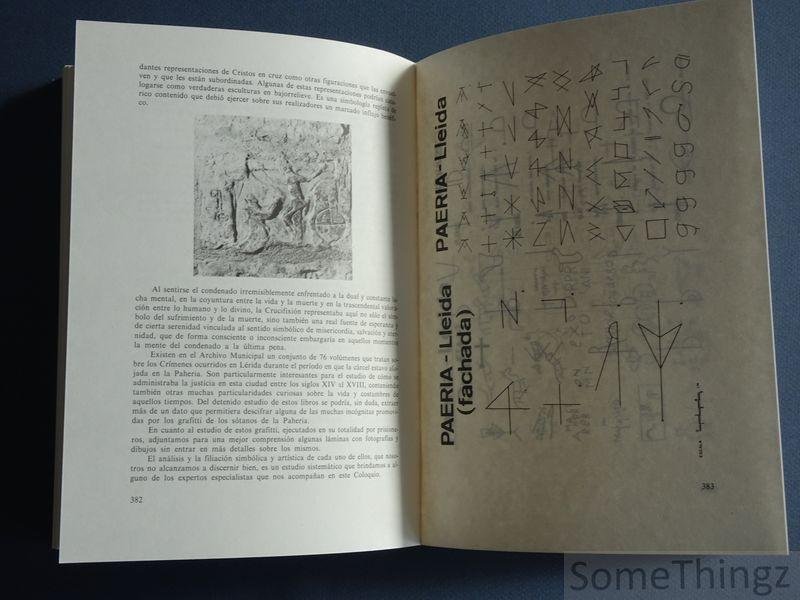 dantes representaciones de Cristos en cruz como otras figuraciones que las
ven y que les están subordinadas. Algunas de estas representaciones podrían
logarse como verdaderas esculturas en bajorrelieve. Es una simbología repleta de
rico contenido que debió ejercer sobre sus realizadores un marcado influjo
co.
Al sentirse el condenado irremisiblemente enfrentado a la dual y constante lu-
cha mental, en la coyuntura entre la vida y la muerte y en la trascendental
ción entre lo humano y lo divino, la Crucifixión representaba aquí no sólo el sím-
bolo del sufrimiento y de la muerte, sino también una real fuente de esperanza y
de cierta serenidad vinculada al sentido simbólico de misericordia, salvación y
nidad, que de forma consciente o inconsciente embargaría en aquellos momentos
la mente del condenado a la última pena.
Existen en el Archivo Municipal un conjunto de 76 volúmenes que tratan so-
bre los Crímenes ocurridos en Lérida durante el período en que la cárcel estavo alo-
jada en la Paheria. Son particularmente interesantes para el estudio de cómo se
administraba la justicia en esta ciudad entre los siglos XIV al XVIII, conteniendo
también otras muchas particularidades curiosas sobre la vida y costumbres de
aquellos tiempos. Del detenido estudio de estos libros se podría, sin duda, extraer
más de un dato que permitiera descifrar alguna de las muchas incógnitas promovi-
das por los grafitti de los sótanos de la Paheria.
En cuanto al estudio de estos grafitti, ejecutados en su totalidad por prisione-
ros, adjuntamos para una mejor comprensión algunas láminas con fotografías y
dibujos sin entrar en más detalles sobre los mismos.
El análisis y la filiación simbólica y artística de cada uno de ellos, que noso-
tros no alcanzamos a discernir bien, es un estudio sistemático que brindamos a al-
guno de los expertos especialistas que nos acompañan en este Coloquio.
382
PAERIA-Lleida
PAERIA-Lleida
(fachada)
ESCALA
383
SomeThingz